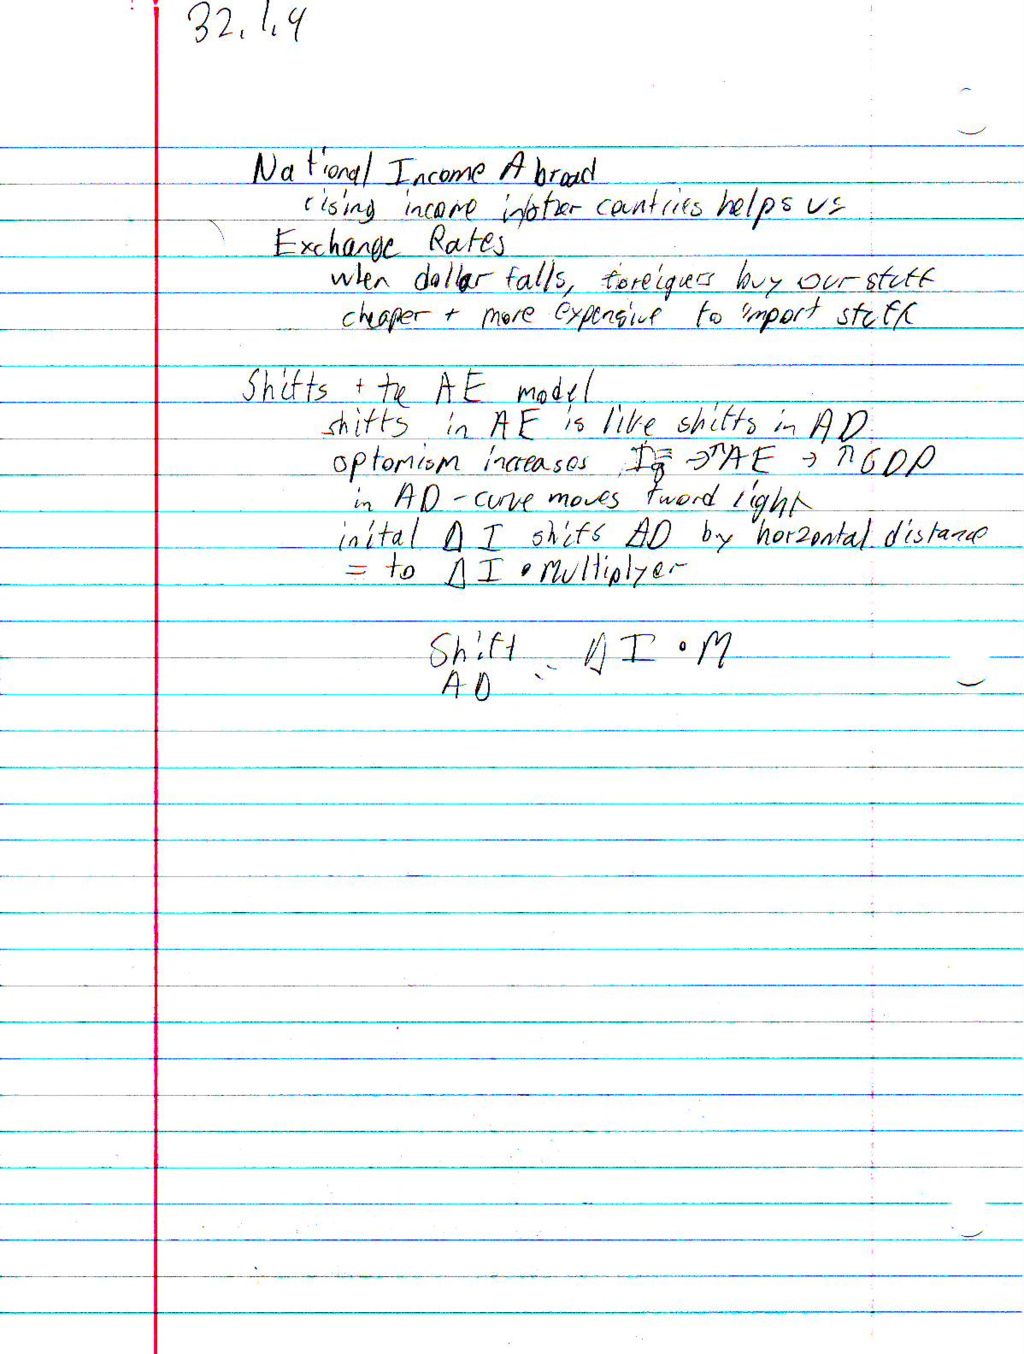 32.1.4
National Income Abroad
rising income in other countries helps us
Exchange Rates
when dollar falls, foreigners buy our stuff
cheaper + more expensive to import stuff
Shifts + the AE model
shifts in AE is like shifts in AD
optomism increases Ig → ↑AE → ↑GDP
in AD-curve moves tword right
inital Δ I shifts AD by horzontal distance
= to Δ I • multiplyer
Shift = Δ I • M
AD